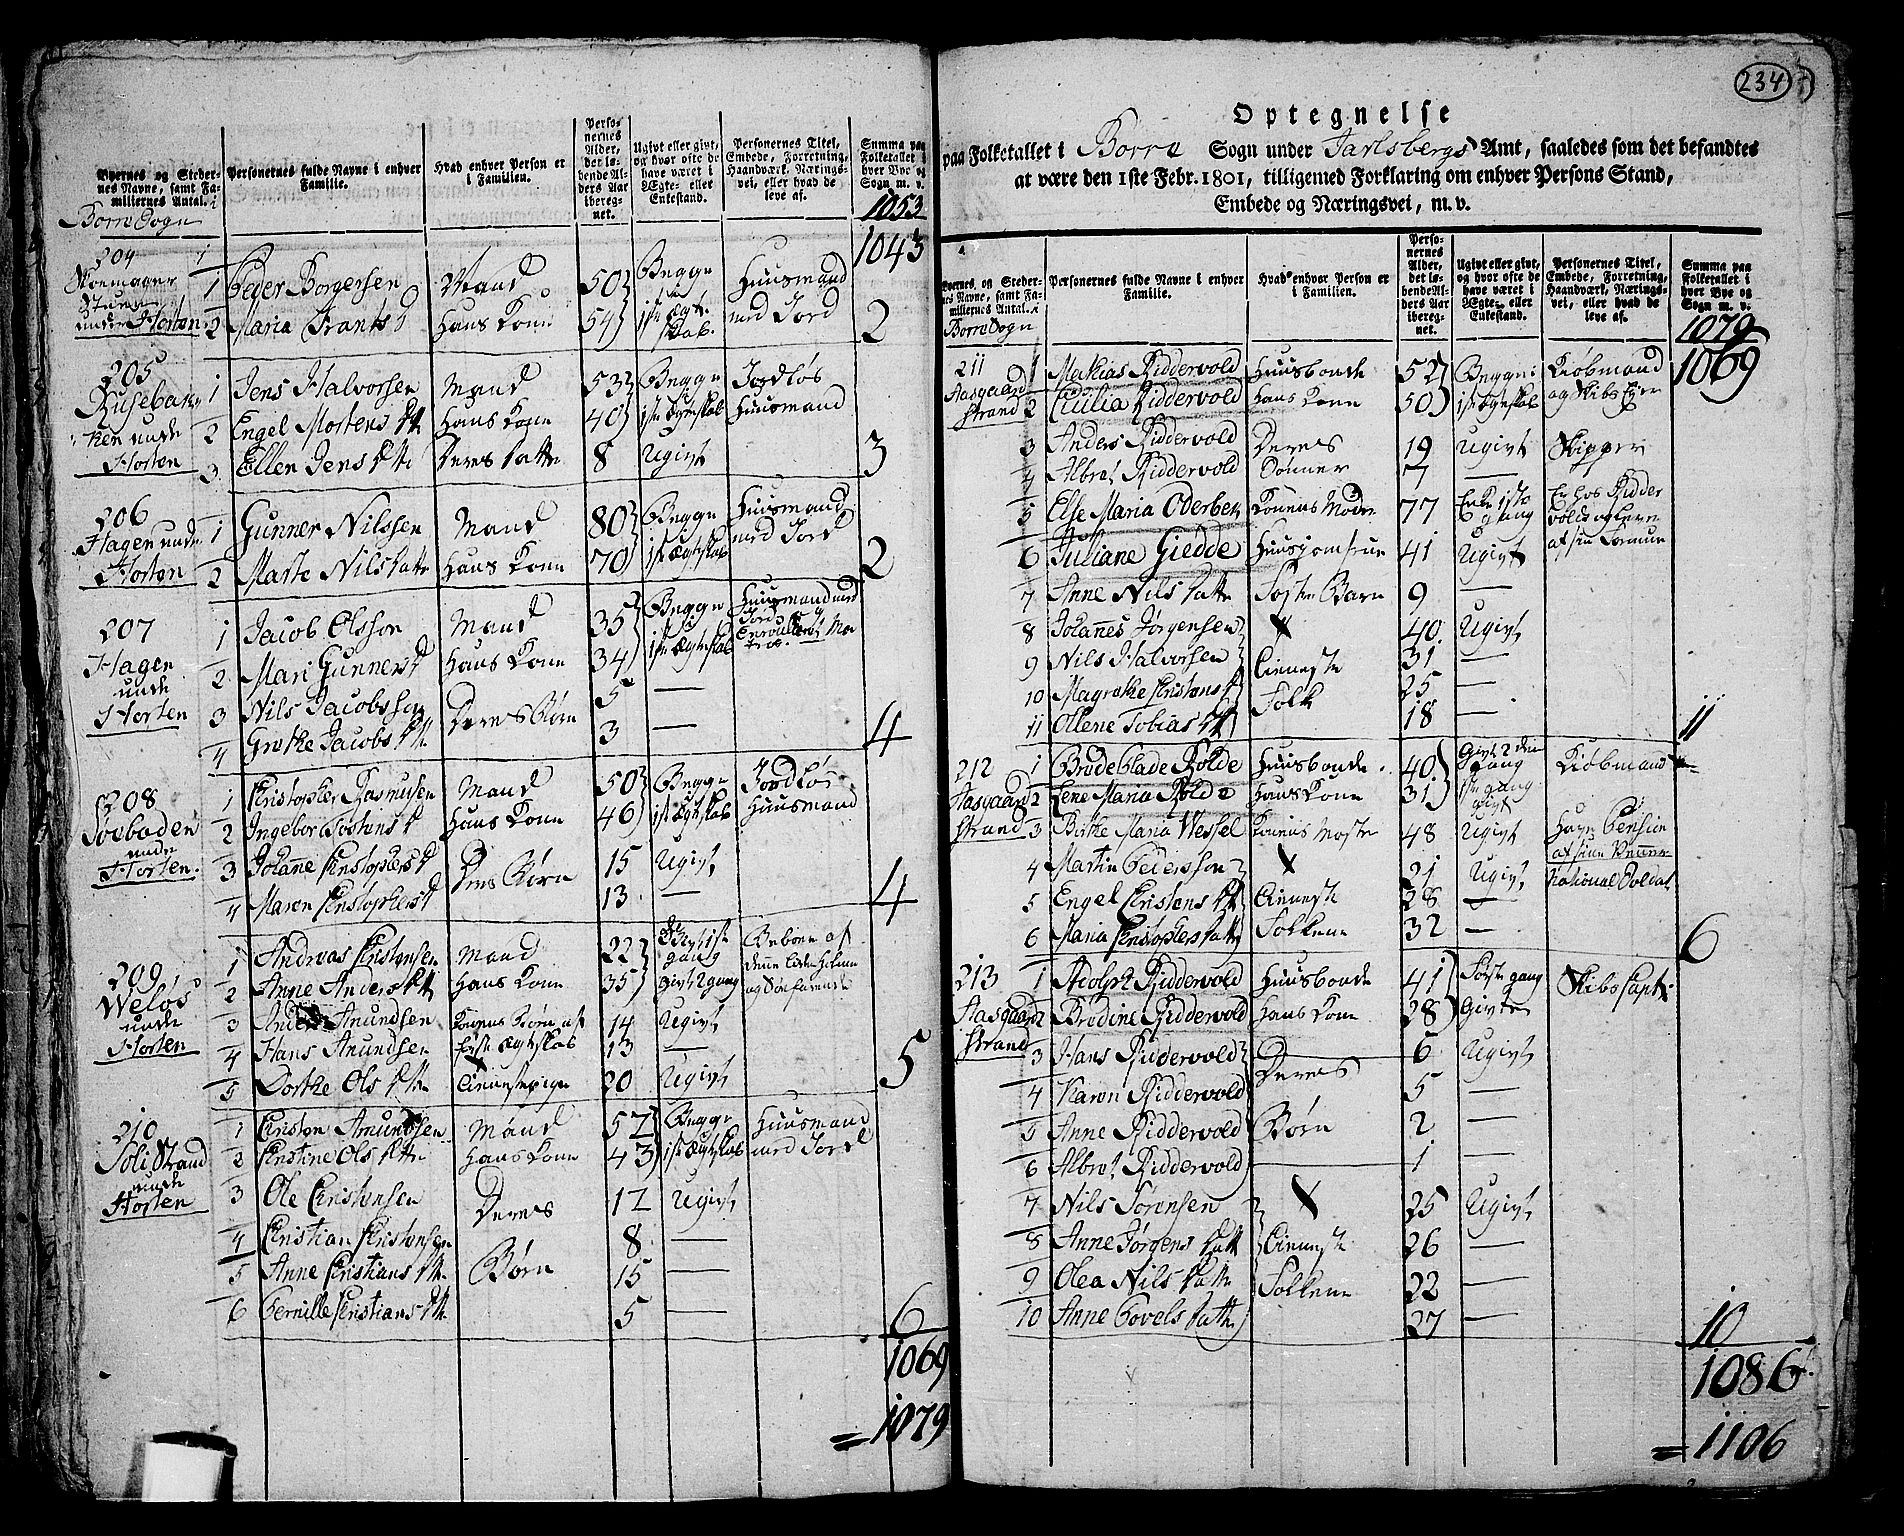 Byernes og Steder-
nes Navne, samt Fa-
miliernes Antal. i
Borre Sogn
Personernes fulde Navne i enhver
Familie.
Hvad enhver Person er
i Familien.
Perso-
nernes
Alder,
det lø-
bende Al-
ders Aar
iberegnet.
Ugivt eller givt,
og hvor ofte de
have været i
Ægte- eller
Enkestand.
Personernes Titel,
Embede, Forretning,
Haandværk, Nærings-
vei, eller hvad de
leve af.
Summa paa
Folketallet i
hver Bye og
Sogn m. v.
1053
1043
204 1
Skomager
Stuen
under Horten
1 Peder Borgersen Mand 50 Begge Huusmand
2 Maria Frants D Hans Kone 54 1ste Ægteskab. med Jord 2
205
Horten
1 Jens Halvorsen Mand 53 Begge Jordløs
2 Engel Mortens Dtt Hans Kone 40 1ste Ægteskab Huusmand
3 Ellen Jens Dtt Deres Datter 8 Ugivt 3
206
Hagen under
Horten
1 Gunner Nilssen Mand 80 Begge Huusmand
2 Marte Nils Datter Hans Kone 70 1ste Ægteskab med Jord 2
207
Hagen
under
Horten
1 Jacob Olsson Mand 35 Begge Huusmand med Jord
2 Mari Gunners D Hans Kone 34 1ste Ægteskab
3 Nils Jacobsson Deres Børn 5 —
4 Grethe Jacobs Dtt 3 — 4
208
under
Horten.
1 Christopher Rasmusen Mand 50 Begge Jordløs
2 Ingebor Tostens D Hans Kone 46 1ste Ægteskab Huusmand
3 Johanne Christophers D Deres Børn 15 Ugivt
4 Maren Christophers D 13 — 4
209
Weløs
under
Horten
1 Andreas Christensen Mand 22 Givt 1ste gang Beboer af
2 Anne Anders Dtt Hans Kone 35 givt 2 gang denne
3 Anders Amundsen Konens Børn af 14 Ugivt
4 Hans Amundsen første Ægteskab 13 —
5 Dorthe Ols Dtt Tienestepige 20 Ugivt 5
210
Solistrand
under
Horten
1 Christen Amundsen Mand 57 Begge Huusmand
2 Christine Ols Datter Hans Kone 43 1ste Ægteskab med Jord
3 Ole Christensen Deres 12 Ugivt
4 Christian Christensen 8 —
5 Anne Christians Dtt. Børn 15 —
6 Pernille Christians Dtt. 5 — 6
1069
= 1079
234
Optegnelse
paa Folketallet i Borre Sogn under Jarlsbergs Amt, saaledes som det befandtes
at være den 1ste Febr. 1801, tilligemed Forklaring om enhver Persons Stand,
Embede og Næringsvei, m. v.
Byernes og Steder-
nes Navne, samt Fa-
miliernes Antal. i
Borre Sogn
Personernes fulde Navne i enhver
Familie.
Hvad enhver Person er
i Familien.
Perso-
nernes
Alder,
det lø-
bende Al-
ders Aar
iberegnet.
Ugivt eller givt,
og hvor ofte de
have været i
Ægte- eller
Enkestand.
Personernes Titel,
Embede, Forretning,
Haandværk, Nærings-
vei, eller hvad de
leve af.
Summa paa
Folketallet i
hver Bye og
Sogn m. v.
1079
1069
211
Aasgaard
strand
1 Mathias Riddervold Huusbonde 52 Begge i Kiøbmand
2 Cicilia Riddervold Hans Kone 50 1ste Ægteskab og Skibs Eyer
3 Anders Riddervold Deres 19 Ugivt Skipper
4 Albret Riddervold Sønner 7 —
5 Else Maria Oderbek Konens Moder 77 Enke 1ste gang Er hos Ridder
volds og Leve
af sin Formue
6 Juliane Giedde Huusjomfrue 41 Ugivt
7 Anne Nils Datter Foster Barn 9
8 Johannes Jørgensen X 40 Ugivt
9 Nils Halvorsen Tieneste 31 —
10 Magrethe Christens D Folk 25 —
11 Ollene Tobias Dtt 18 — 11
212
Aasgaard
strand
1 Brodeblade Rolde Huusbonde 40 Givt 2den Gang Kiøbmand
2 Lene Maria Rolde Hans Kone 31 1ste gang givt
3 Birthe Maria Wessel Konens Moster 48 Ugivt Haver Pension
af sine Venner
4 Martin Pederssen X 21 Ugivt National Soldat
5 Engel Christens Dtt Tieneste 28 —
6 Maria Christophers Datter Folkene 32 — 6
213
Aasgaard
strand
1 Adolph Riddervold Huusbonde 41 Første gang Skibs Capt:
2 Brodine Riddervold Hans Kone 28 Givte
3 Hans Riddervold Deres 6 Ugivt
4 Karen Riddervold 5 —
5 Anne Riddervold Børn 2 —
6 Albret Riddervold 1 —
7 Nils Sørensen X 25 Ugivt
8 Anne Jørgens Datt Tieneste 26 —
9 Olea Nils Datter Folkene 22 —
10 Anne Povels Datter 27 — 10
1086
= 1106